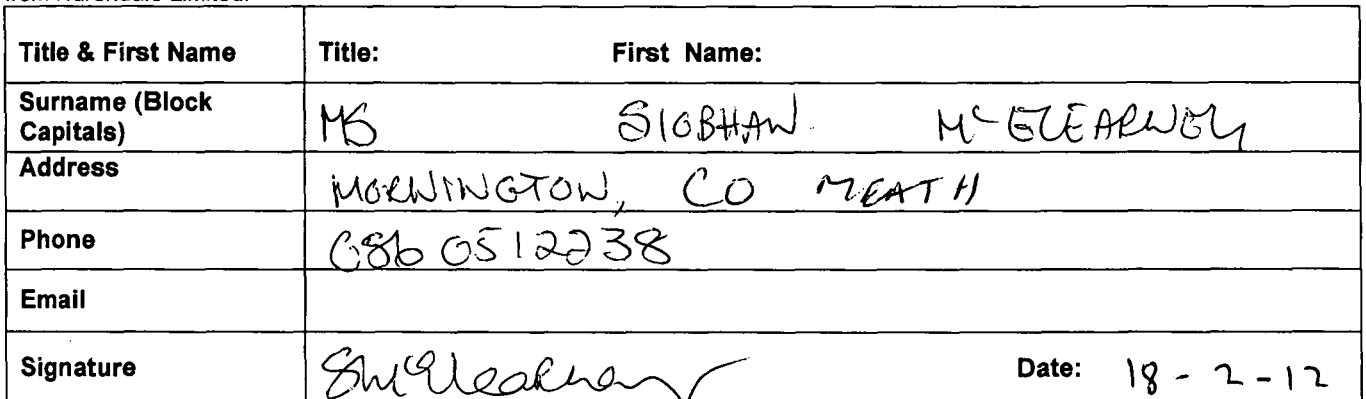 Title & First Name Title: First Name:
Surname (Block Capitals) MS SIOBHAN McELEARNEY
Address MORNINGTON, CO MEATH
Phone 086 0512238
Email
Signature SMcElearney Date: 18 - 2 - 12